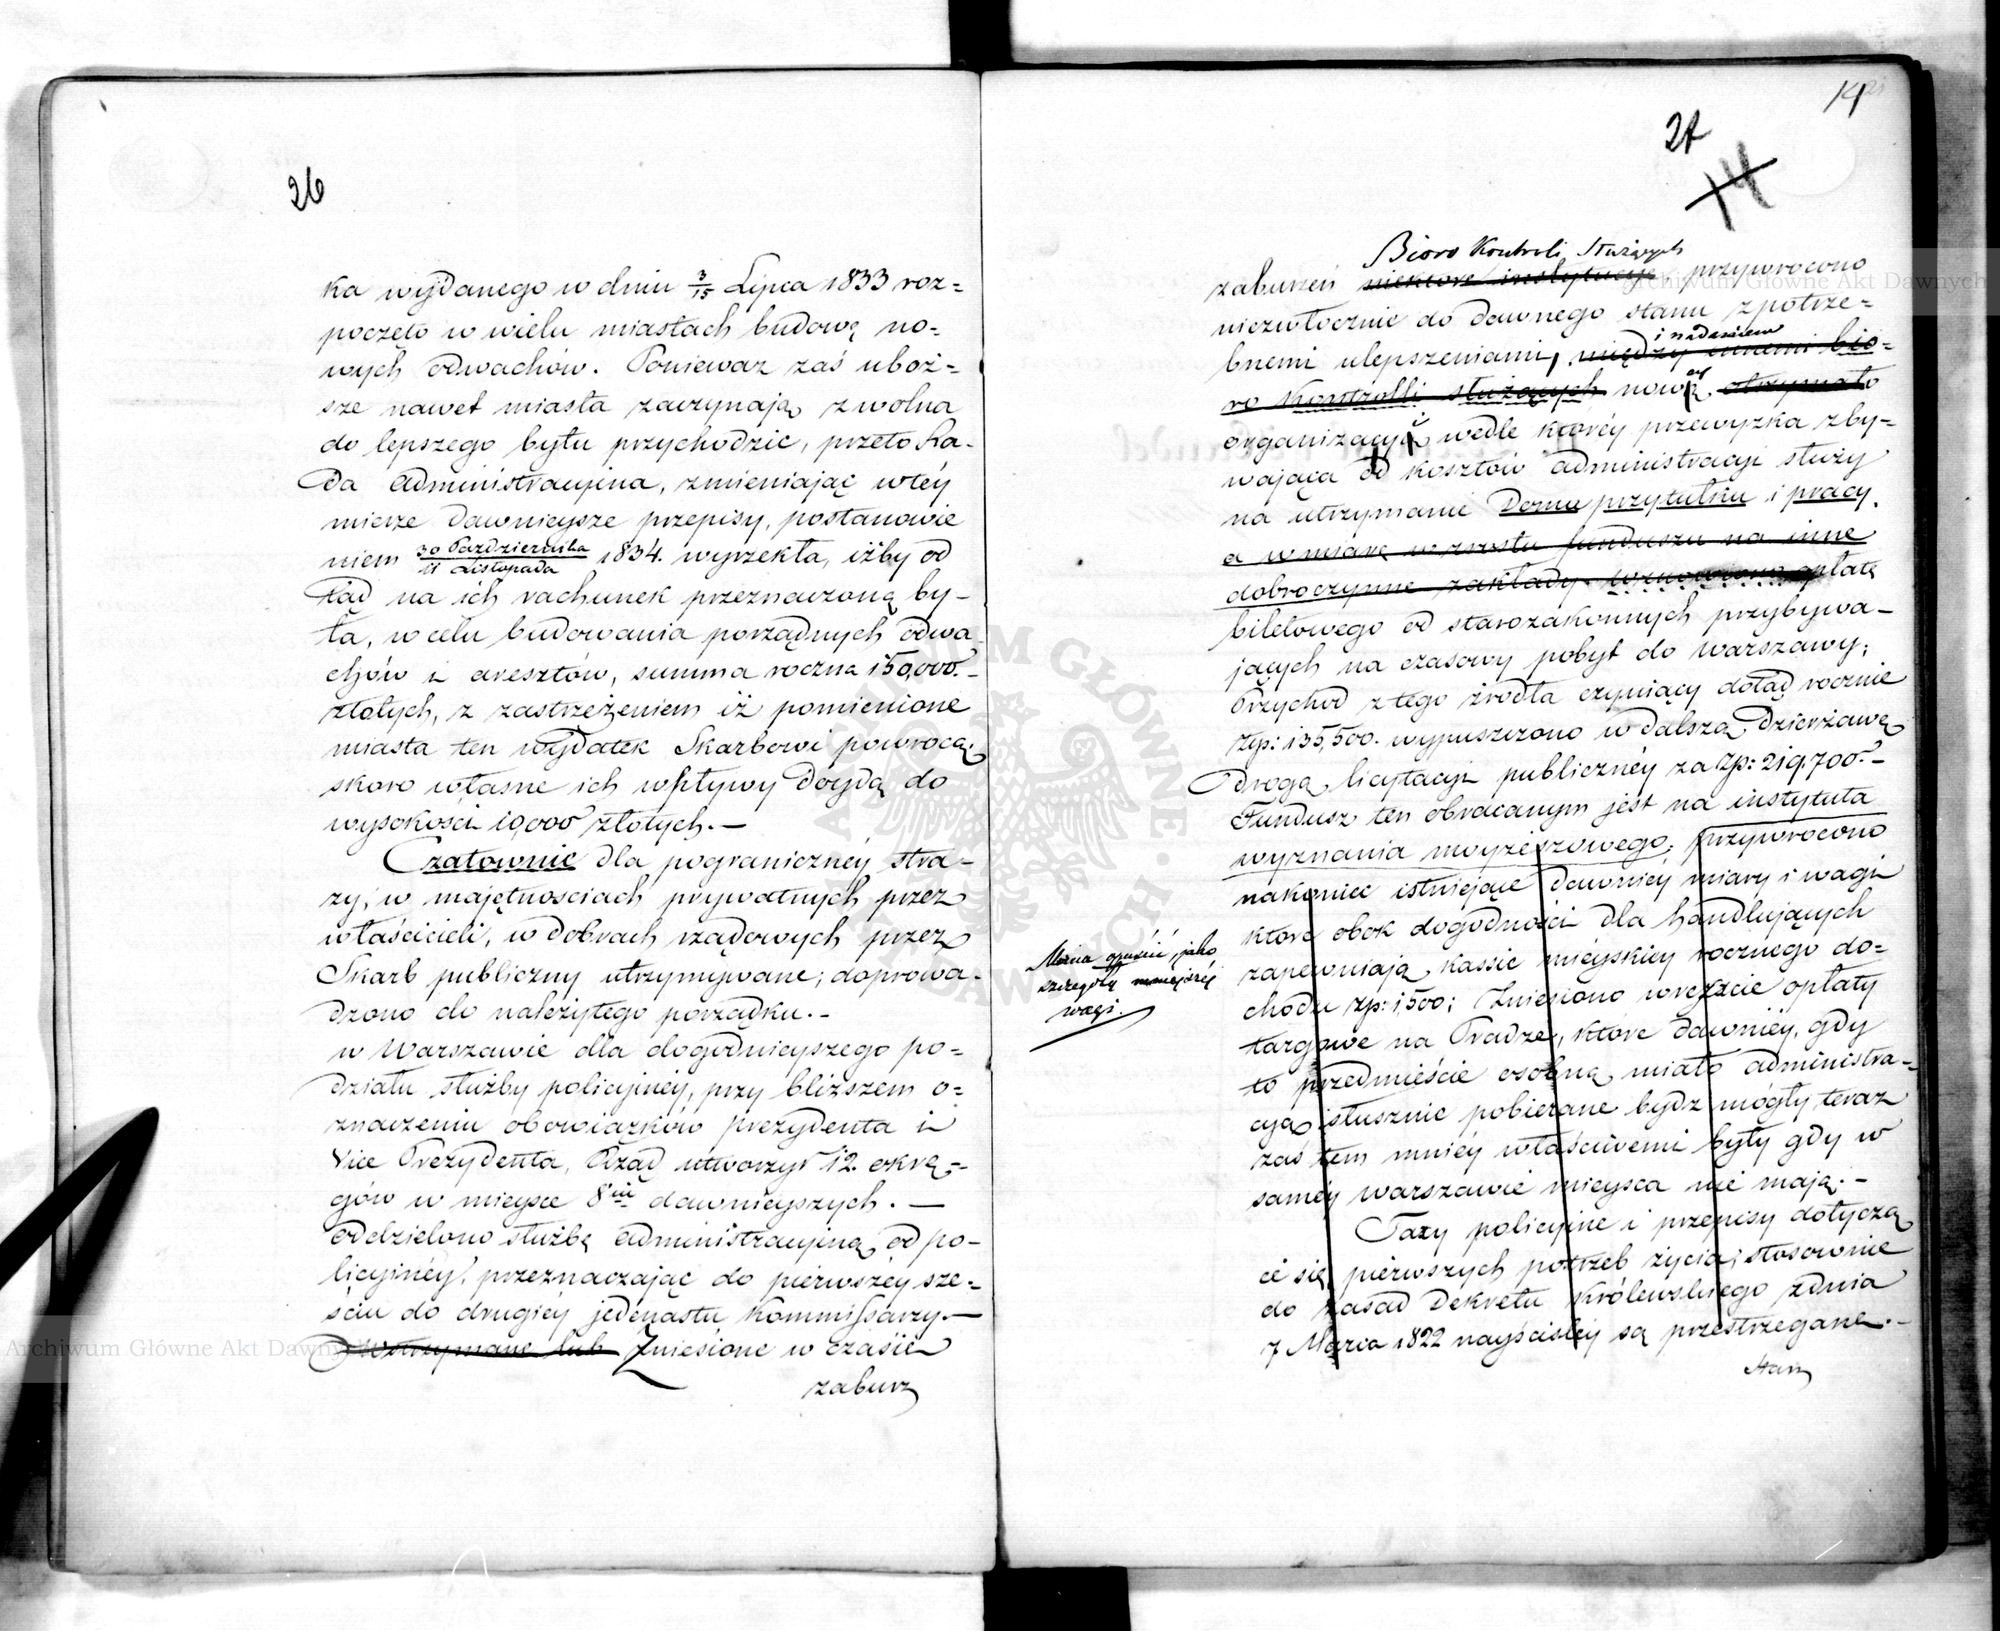 26
ka wydanego w dniu 3/15 Lipca 1833 roz=
poczęto w wielu miastach budowę no=
wych odwachów. Ponieważ zaś uboż=
sze nawet miasta zaczynają zwolna
do lepszego bytu przychodzić, przeto Ra-
da Administracyina, zmieniając w téy
mierze dawnieysze przepisy, postanowie
niem 30 Października/11 Listopada 1834. wyrzekła, iżby od
tąd na ich rachunek przeznaczoną by-
ła, w celu budowania porządnych odwa-
chów i aresztów, summa roczna 150,000.-
złotych, z zastrzeżeniem iż pomienione
miasta ten wydatek Skarbowi powrócą,
skoro własne ich wpływy doydą do
wysokości 10,000 złotych.—
Czatownie dla pogranicznéy stra-
ży, w maiętnościach prywatnych przez
właścicieli, w dobrach rządowych przez
Skarb publiczny utrzymywane; doprowa-
dzono do należytego porządku.-
w Warszawie dla dogodnieyszego po=
działu służby policyinéy, przy bliższem o=
znaczeniu obowiązków Prezydenta i
Vice Prezydenta, Rząd utworzył 12. okrę-
gów w mieysce 8miu dawnieyszych.—
oddzielono służbę administracyiną od po-
licyinéy, przeznaczając do pierwszéy sze=
ściu do drugiéy jedenastu Kommissarzy.—
Wstrzymane lub Zniesione w czasie
zaburz
14
27
14
Bioro Kontroli Służących
zaburzeń niektóre instytucye przywrócono
niezwłocznie do dawnego stanu z potrze=
i nadaniem
bnemi ulepszeniami, między innemi bio=
ro Kontrolli służących nową otrzymało
organizacyi wedle któréy przewyżka zby=
wająca od kosztów administracyi służy
na utrzymanie Domu przytułku i pracy,
a w miarę wzrostu funduszu na inne
dobroczynne zakłady. wznowiono opłatę
biletowego od starozakonnych przybywa-
jących na czasowy pobyt do Warszawy;
Przychód z tego źródła czyniący dotąd rocznie
zp: 135,500. wypuszczono w dalszą dzierżawę
drogą licytacyi publicznéy za zp: 219,700.-
Fundusz ten obracanym jest na instytuta
wyznania moyżeszowego; przywrócono
nakoniec istniejące dawniéy miary i wagi
które obok dogodności dla handlujących
zapewniają kassie mieyskiey rocznego do=
chodu zp: 1,500; Zniesiono wreszcie opłaty
targowe na Pradze, które dawniéy, gdy
to przedmieście osobną miało administra-
cyą słusznie pobierane bydź mógły, teraz
zaś tem mniéy właściwemi były gdy w
saméy Warszawie mieysca nie mają.-
Można opuścić, jako
szczegóły mnieyszéy
wagi.
Taxy policyine i przepisy dotyczą
ce się pierwszych potrzeb życia, stosownie
do zasad Dekretu Królewskiego z dnia
7 Marca 1822 nayściśléy są przestrzegane.-
Stan
Archiwum Główne Akt Dawnych
Archiwum Główne Akt Dawnych
ARCHIWUM GŁÓWNE AKT DAWNYCH